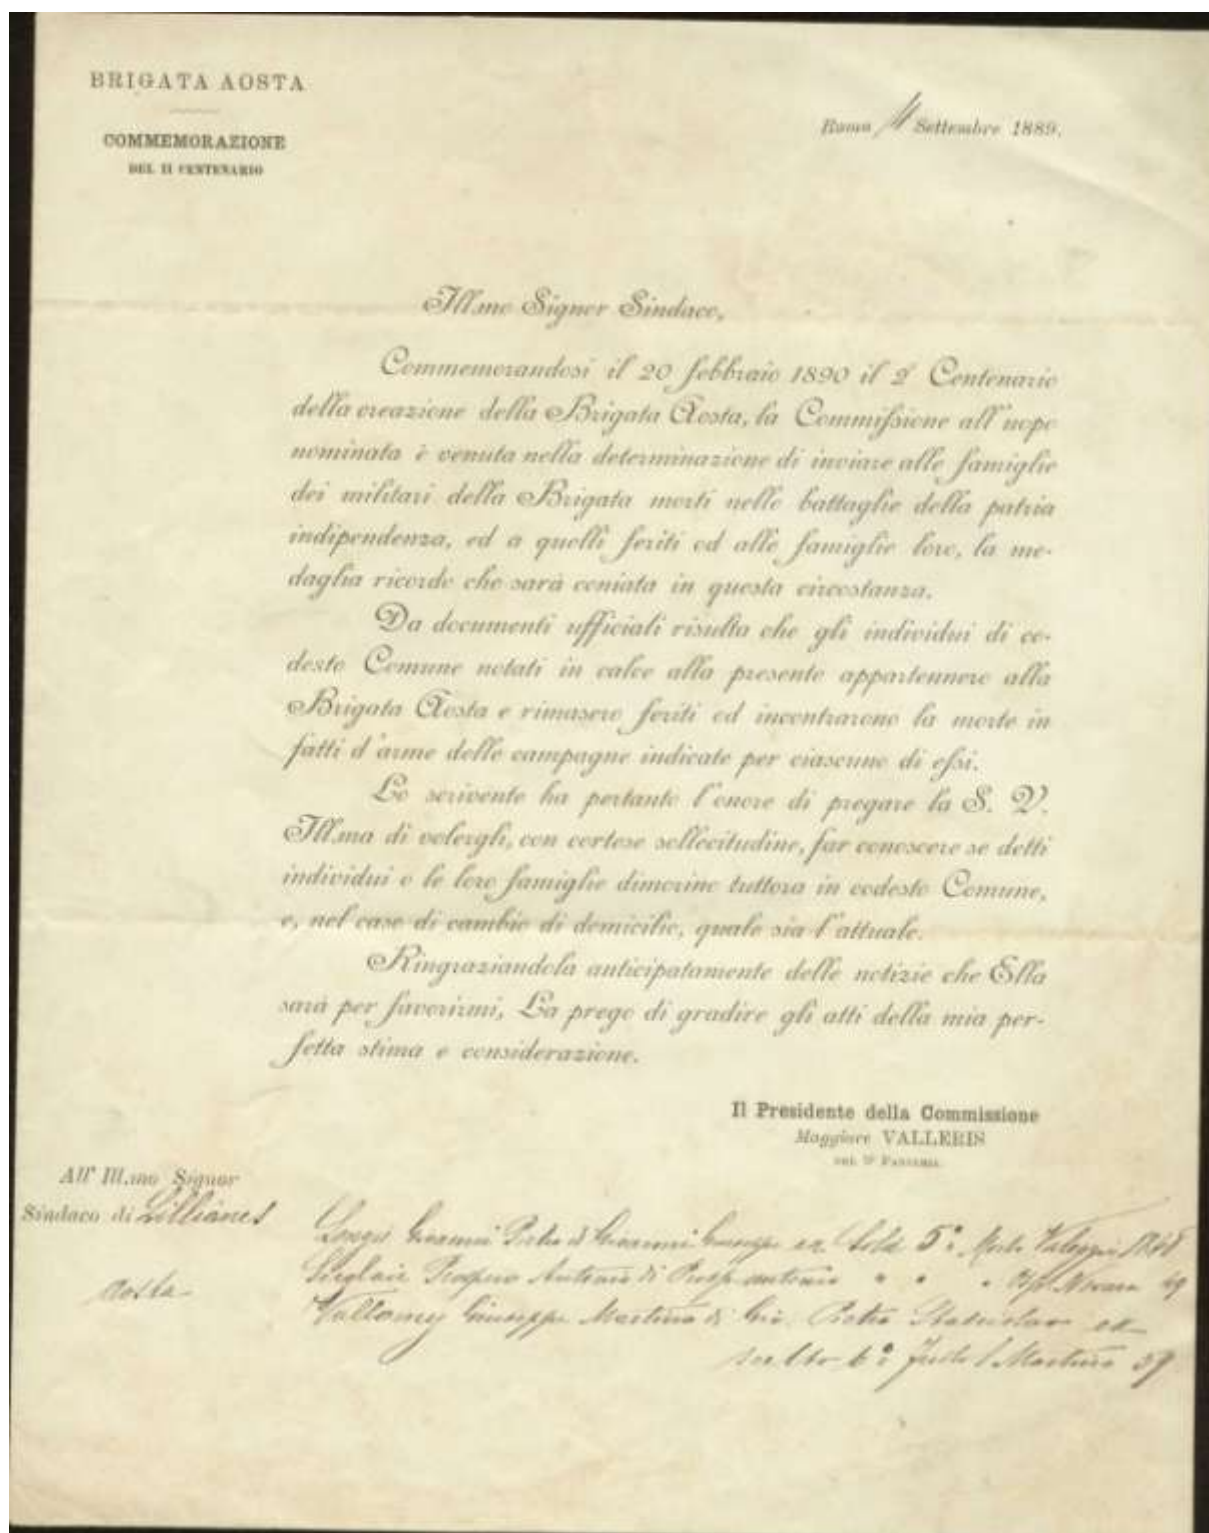 BRIGATA AOSTA
COMMEMORAZIONE
DEL II CENTENARIO
Roma Settembre 1889.
Ill.mo Signor Sindaco,
Commemorandosi il 20 febbraio 1890 il 2° Centenario
della creazione della Brigata Aosta, la Commissione all'uopo
nominata è venuta nella determinazione di inviare alle famiglie
dei militari della Brigata morti nelle battaglie della patria
indipendenza, ed a quelli feriti od alle famiglie loro, la me-
daglia ricordo che sarà coniata in questa circostanza.
Da documenti ufficiali risulta che gli individui di co-
desto Comune notati in calce alla presente appartennero alla
Brigata Aosta e rimasero feriti od incontrarono la morte in
fatti d'arme delle campagne indicate per ciascuno di essi.
Lo scrivente ha pertanto l'onore di pregare la S. V.
Ill.ma di volergli, con cortese sollecitudine, far conoscere se detti
individui o le loro famiglie dimorino tuttora in codesto Comune,
e, nel caso di cambio di domicilio, quale sia l'attuale.
Ringraziandola anticipatamente delle notizie che Ella
sarà per favorirmi, La prego di gradire gli atti della mia per-
fetta stima e considerazione.
Il Presidente della Commissione
Maggiore VALLERIS
DEL 5° FANTERIA
All' Ill.mo Signor
Sindaco di Lillianes
Aosta
Giovanni Pietro di Giovanni Giuseppe ex Sold 5° Morto Valeggio 1848
Prospero Antonio di Prosp. Antonio " " " Novara 49
Vallomy Giuseppe Martino di Gio. Pietro ex
6° Martino 59